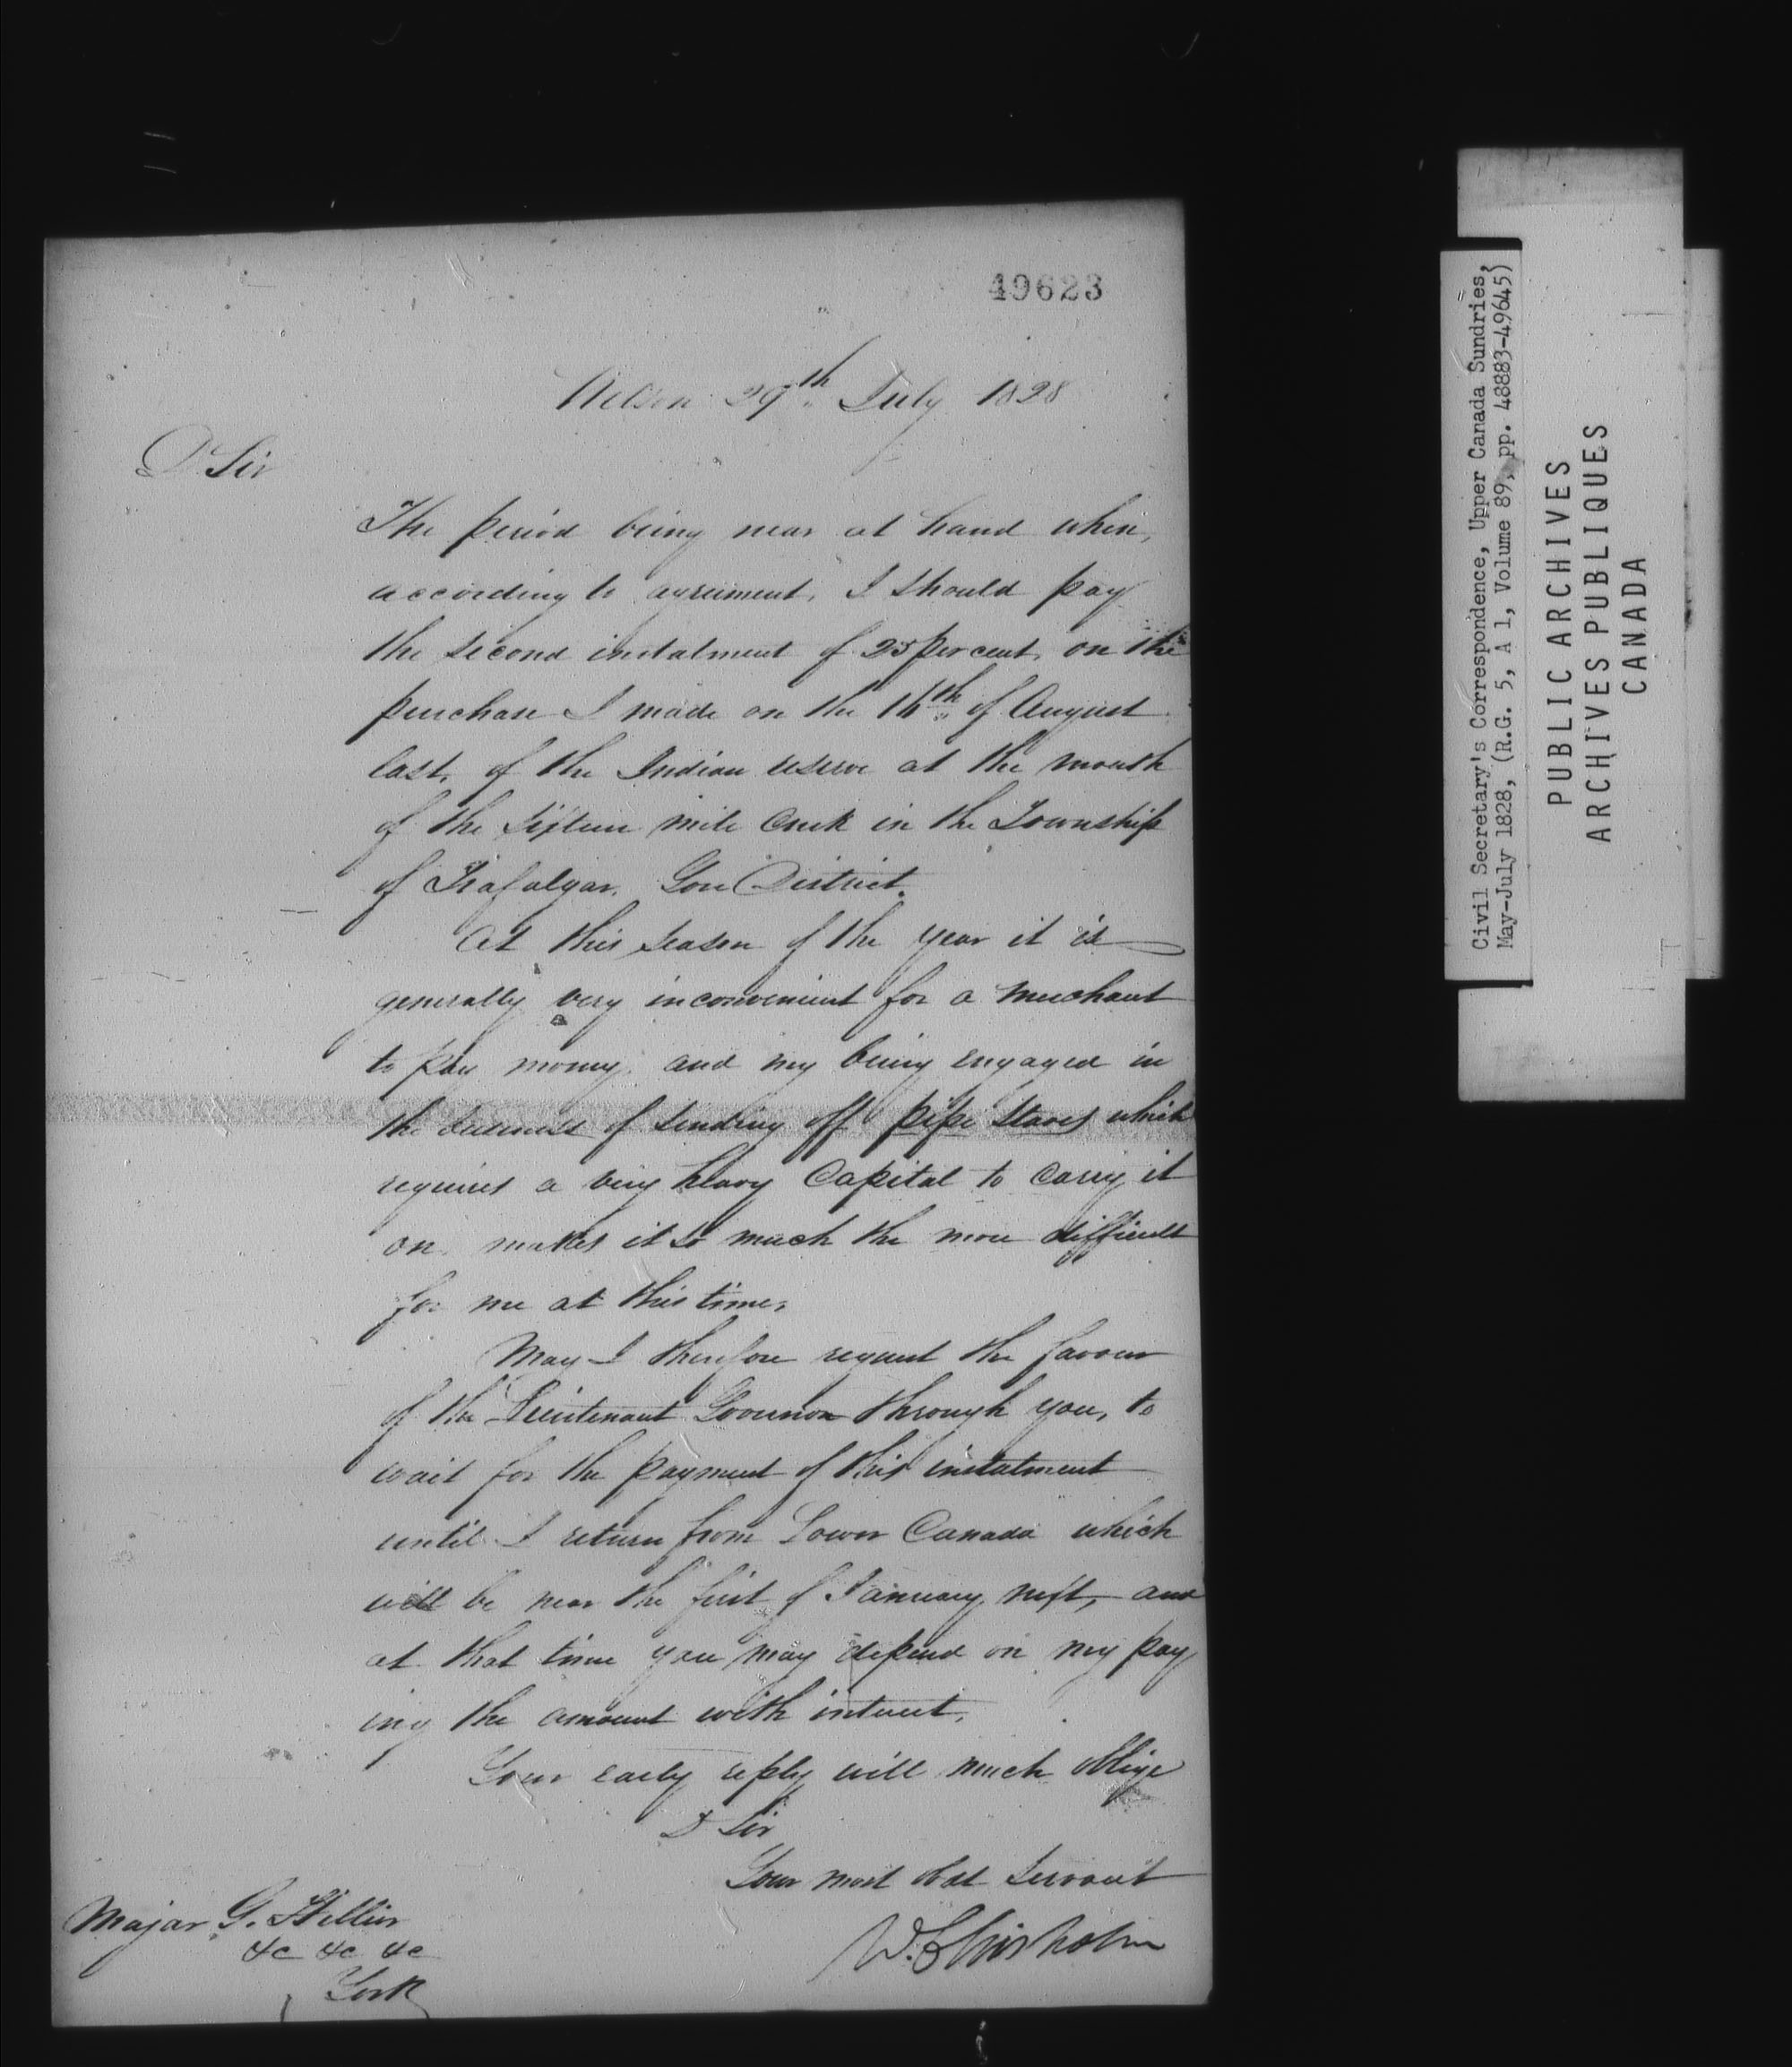 49623
Nelson 29th July 1828
D Sir
The period being near at hand when,
according to agreement, I should pay
the second instalment of 25 per cent, on the
purchase I made on the 16th of August
last, of the Indian reserve at the mouth
of the Sixteen mile Creek in the Township
of Trafalgar, Gore District.
At this season of the year it is
generally very inconvenient for a merchant
to pay money, and my being engaged in
the business of sending off pipe staves which
requires a very heavy Capital to carry it
on, makes it so much the more difficult
for me at this time,
May I therefore request the favour
of the Lieutenant Governor through you, to
wait for the payment of this instalment
until I return from Lower Canada which
will be near the first of January next, and
at that time you may depend on my pay
ing the amount with interest.
Your early reply will much oblige
D Sir
Your most obdt Servant
W. Chisholm
Major G. Hillier
&c &c &c
York
Civil Secretary's Correspondence, Upper Canada Sundries,
May-July 1828, (R.G. 5, A 1, Volume 89, pp. 48883-49645)
PUBLIC ARCHIVES
ARCHIVES PUBLIQUES
CANADA